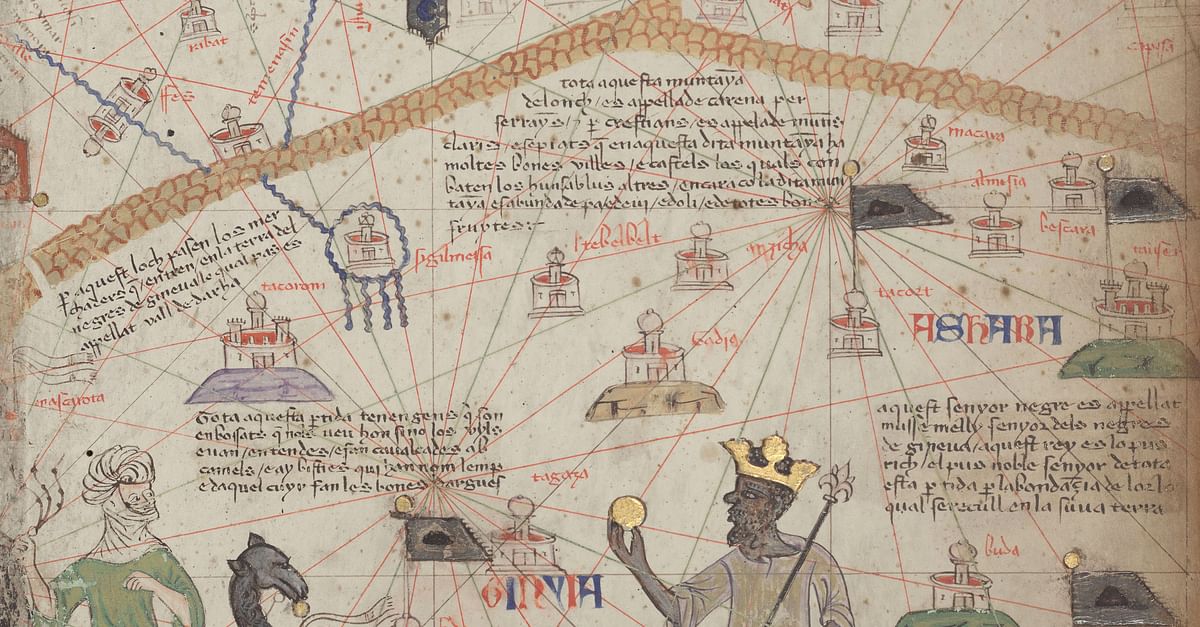 ribat
ffes
tota aquesta muntaya
de lonch / es appellade carena per
serrayns / ⁊ p crestians / es appelade muntis
claris / e sepiats q en aquesta dita muntaya ha
moltes bones villes / e castels los quals con
baten los huns ab lus altres / encara co la dita mun
taya es abunda de pa e de vi / e d oli / e de totes bones
fruytes :~
macara
almsia
bescara
p aquest loch pasen los mer
chaders q entren en la terra del
negres de gineua lo qual pas es
appellat vall de darha
sigilmessa
tebelbelt
anzicha
tacorom
tacort
ASHARA
Tota aquesta ptida tenen gens q son
enbossats q nols veu hom sino los vyls
e van / en tendes / e fan caualcades ab
camels / e ay bisties qui han nom lemp
e daquel cuyr fan les bones dargues
aquest senyor negre es appellat
musse melly senyor dels negres
de gineua / aquest rey es lo pus
rich / el pus noble senyor de tota
esta ptida p labondazia de lor lo
qual se recull en la suua terra
tagaza
buda
GINYIA